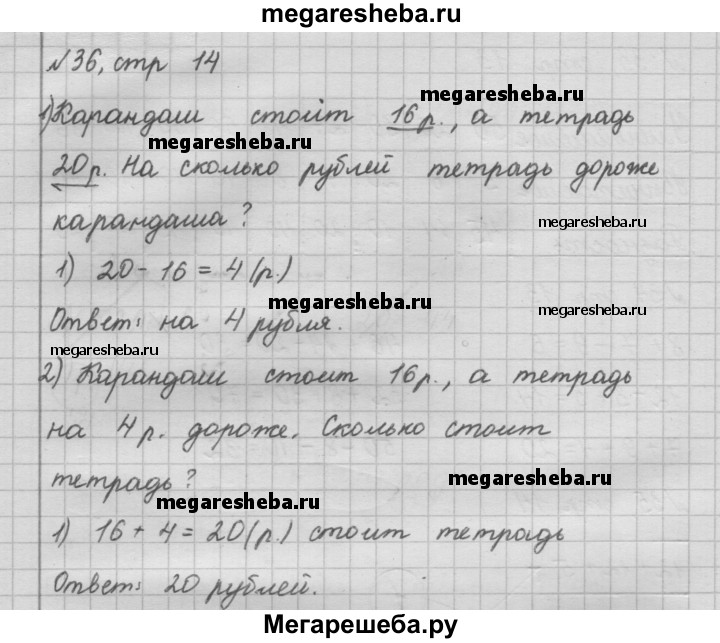 megaresheba.ru
№36, стр 14
1) Карандаш стоит 16 р., а тетрадь
megaresheba.ru
megaresheba.ru
20 р. На сколько рублей тетрадь дороже
карандаша?
megaresheba.ru
1) 20 - 16 = 4 (р.)
megaresheba.ru
Ответ: на 4 рубля.
megaresheba.ru
2) Карандаш стоит 16 р., а тетрадь
на 4 р. дороже. Сколько стоит
тетрадь?
megaresheba.ru
megaresheba.ru
1) 16 + 4 = 20 (р.) стоит тетрадь
Ответ: 20 рублей.
Мегарешеба.ру